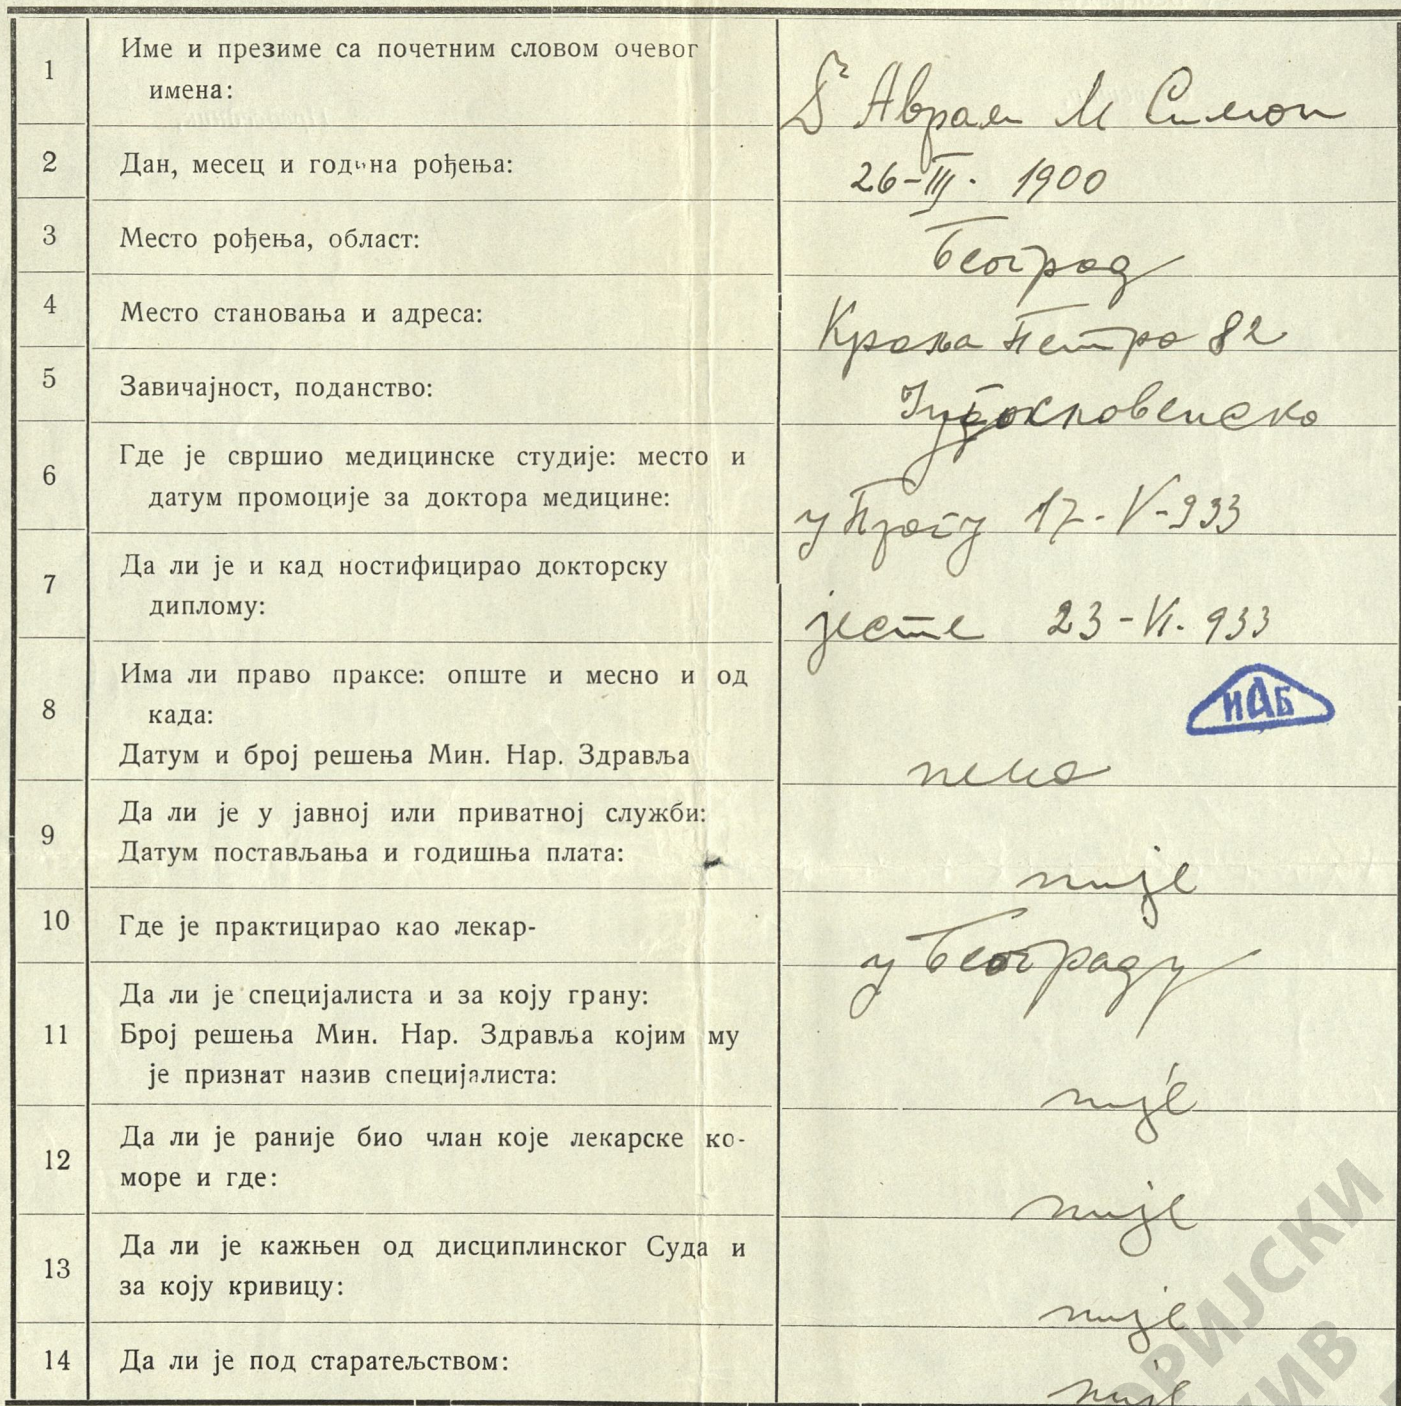 1
Име и презиме са почетним словом очевог
имена:
Др Аврам М Симон
2
Дан, месец и година рођења:
26-III. 1900
3
Место рођења, област:
Београд
4
Место становања и адреса:
Краља Петра 82
5
Завичајност, поданство:
Југословенско
6
Где је свршио медицинске студије: место и
датум промоције за доктора медицине:
у Прагу 17-V-933
7
Да ли је и кад ностифицирао докторску
диплому:
јесте 23-VI-933
8
Има ли право праксе: опште и месно и од
када:
Датум и број решења Мин. Нар. Здравља
ИАБ
нема
9
Да ли је у јавној или приватној служби:
Датум постављања и годишња плата:
није
10
Где је практицирао као лекар-
у Београду
11
Да ли је специјалиста и за коју грану:
Број решења Мин. Нар. Здравља којим му
је признат назив специјалиста:
није
12
Да ли је раније био члан које лекарске ко-
море и где:
није
13
Да ли је кажњен од дисциплинског Суда и
за коју кривицу:
није
14
Да ли је под старатељством:
није